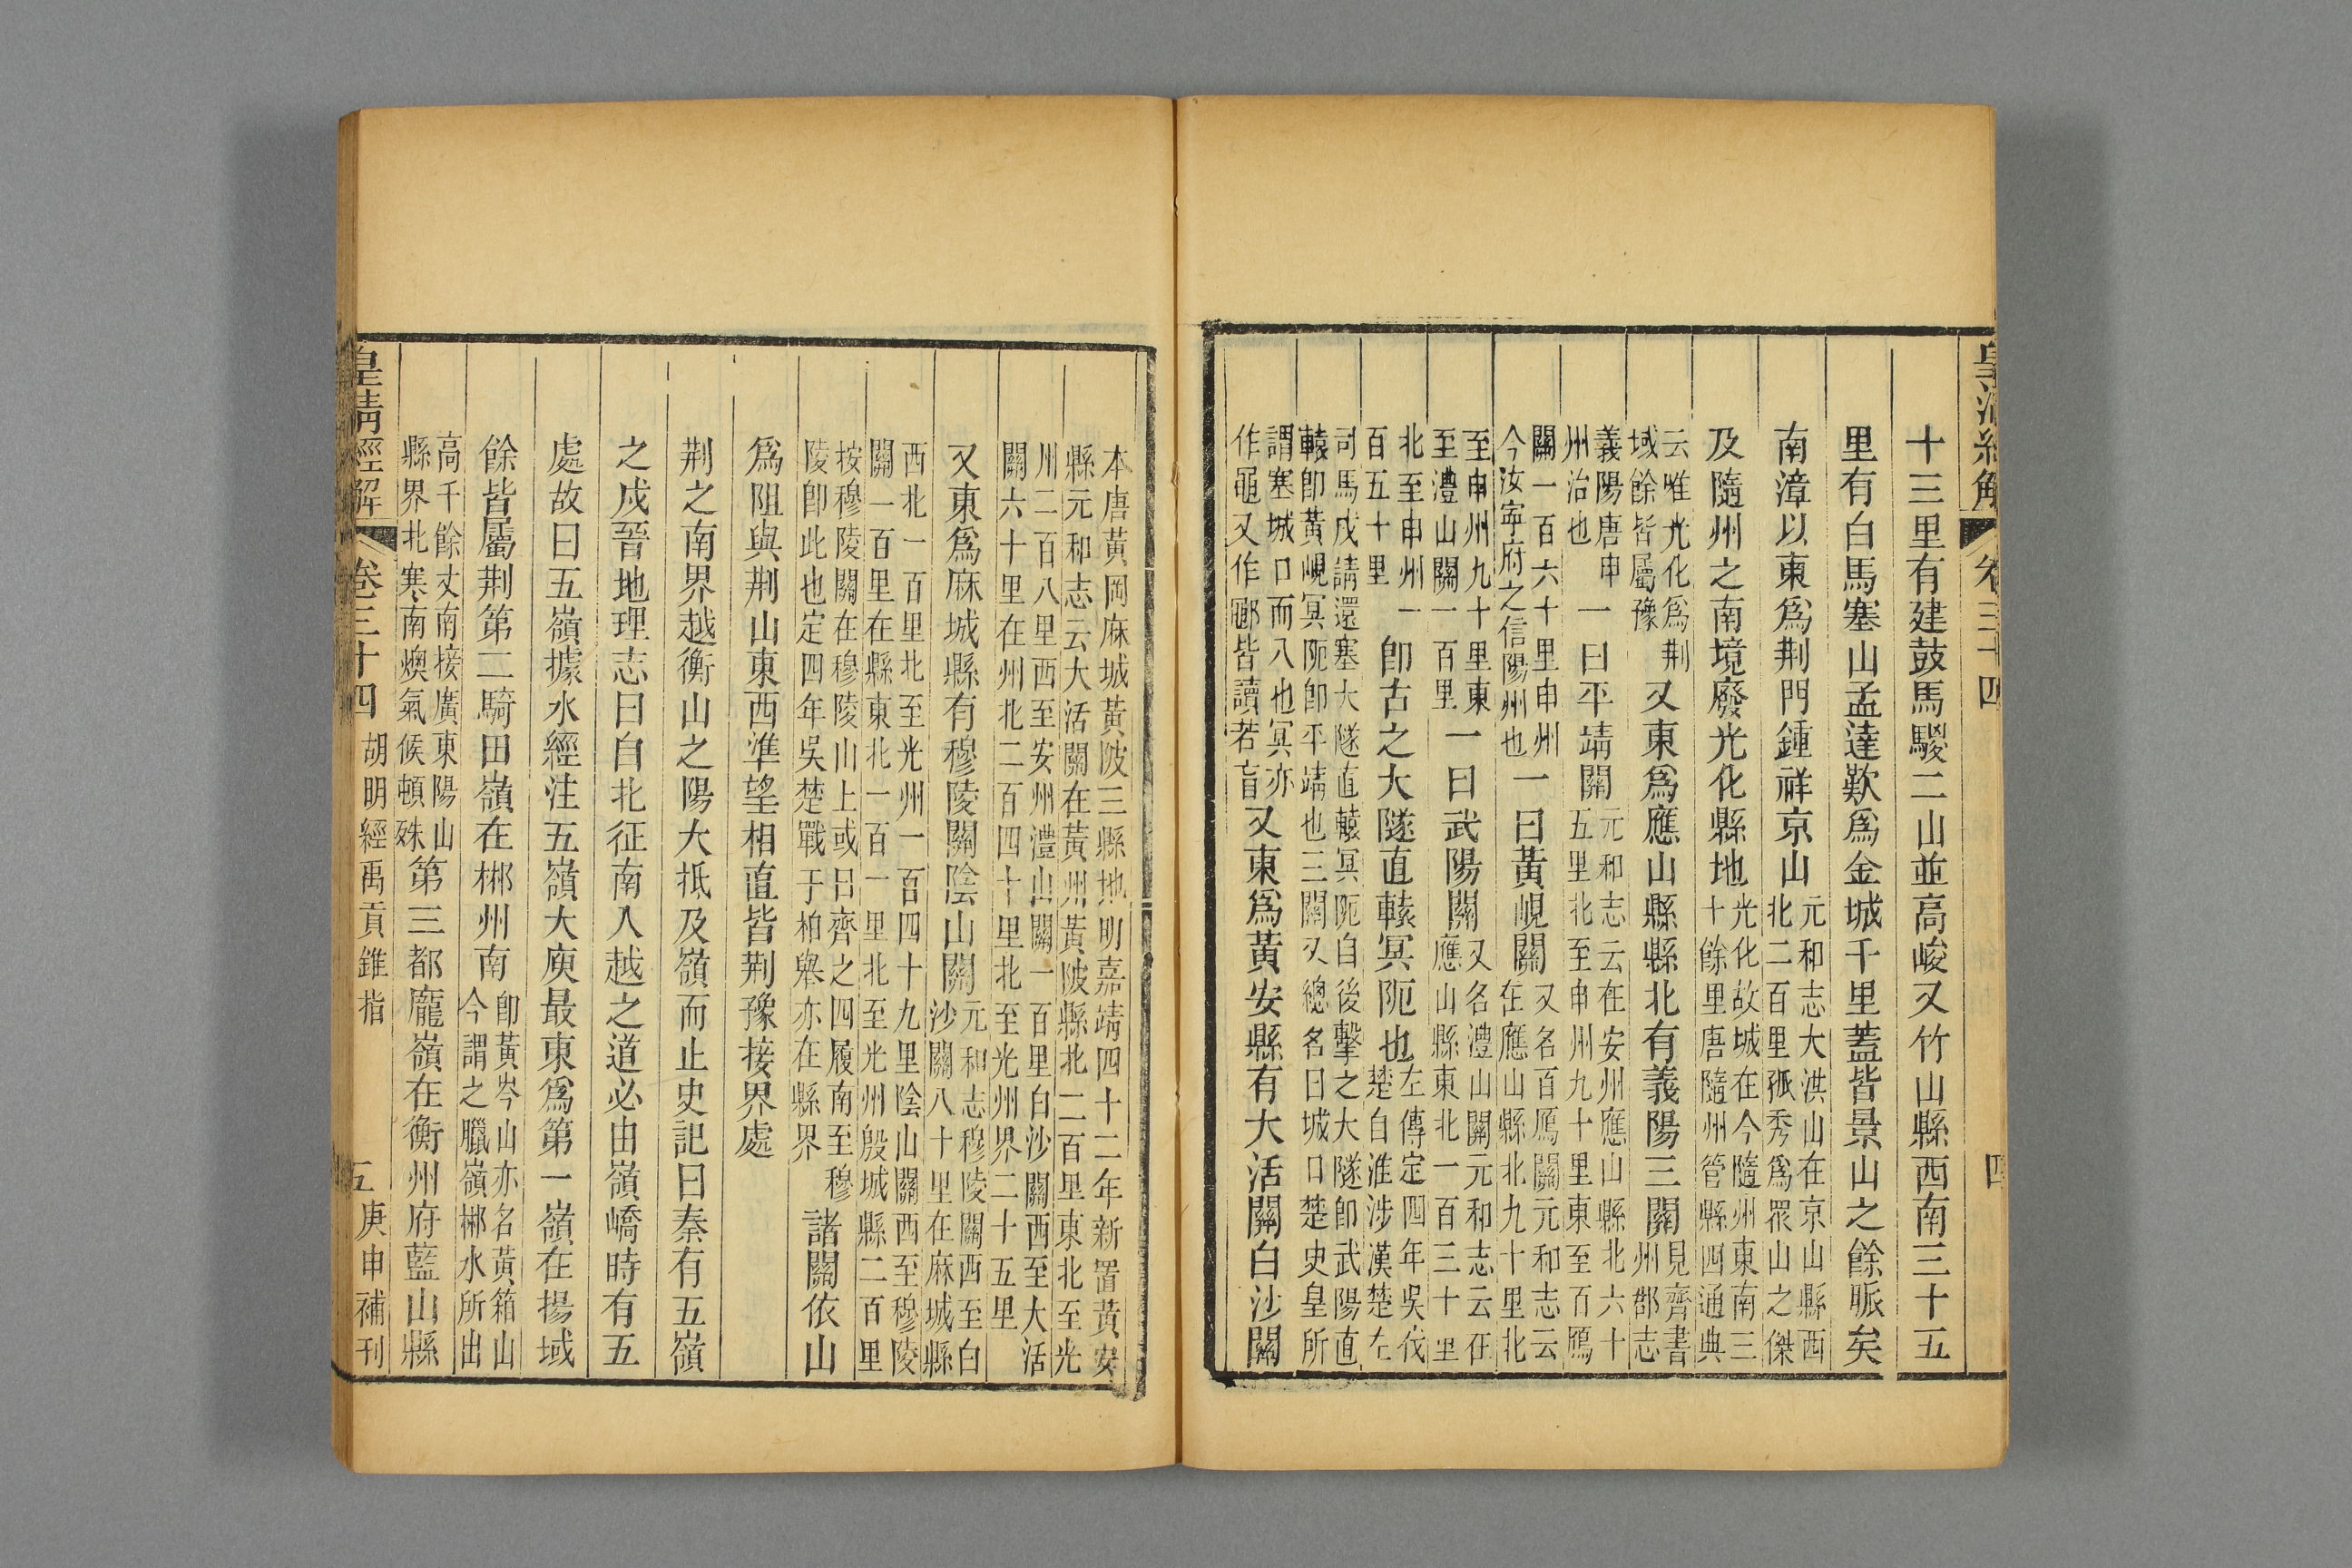 皇清經解 卷三十四 四
十三里有建鼓馬騣二山並高峻又竹山縣西南三十五
里有白馬塞山孟達歎爲金城千里蓋皆景山之餘脈矣
南漳以東爲荆門鍾祥京山元和志大洪山在京山縣西北二百里孤秀爲眾山之傑
及隨州之南境廢光化縣地光化故城在今隨州東南三十餘里唐隨州管縣四通典
云唯光化爲荆域餘皆屬豫又東爲應山縣縣北有義陽三關見齊書州郡志
義陽唐申州治也一曰平靖關元和志云在安州應山縣北六十五里北至申州九十里東至百鴈
關一百六十里申州今汝寧府之信陽州也一曰黃峴關又名百鴈關元和志云在應山縣北九十里北
至申州九十里東至澧山關一百里一曰武陽關又名澧山關元和志云在應山縣東北一百三十里
北至申州一百五十里即古之大隧直轅冥阨也左傳定四年吳伐楚自淮涉漢楚左
司馬戌請還塞大隧直轅冥阨自後擊之大隧即武陽直轅即黃峴冥阨即平靖也三關又總名曰城口楚史皇所
謂塞城口而入也冥亦作黽又作鄳皆讀若盲又東爲黃安縣有大活關白沙關
本唐黃岡麻城黃陂三縣地明嘉靖四十二年新置黃安縣元和志云大活關在黃州黃陂縣北二百里東北至光
州二百八里西至安州澧山關一百里白沙關西至大活關六十里在州北二百四十里北至光州界二十五里
又東爲麻城縣有穆陵關陰山關元和志穆陵關西至白沙關八十里在麻城縣
西北一百里北至光州一百四十九里陰山關西至穆陵關一百里在縣東北一百一里北至光州殷城縣二百里
按穆陵關在穆陵山上或曰齊之四履南至穆陵即此也定四年吳楚戰于柏舉亦在縣界諸關依山
爲阻與荆山東西準望相直皆荆豫接界處
荆之南界越衡山之陽大抵及嶺而止史記曰秦有五嶺
之戍晉地理志曰自北征南入越之道必由嶺嶠時有五
處故曰五嶺據水經注五嶺大庾最東爲第一嶺在揚域
餘皆屬荆第二騎田嶺在郴州南即黃岑山亦名黃箱山今謂之臘嶺郴水所出
高千餘丈南接廣東陽山縣界北寒南燠氣候頓殊第三都龐嶺在衡州府藍山縣
皇清經解 卷三十四 胡明經禹貢錐指 五 庚申補刊